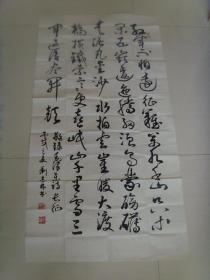 红军不怕远征难万水千山只等
闲五岭逶迤腾细浪乌蒙磅礴
走泥丸金沙水拍云崖暖大渡
桥横铁索寒更喜岷山千里雪三
军过后尽开颜
敬录毛泽东诗长征